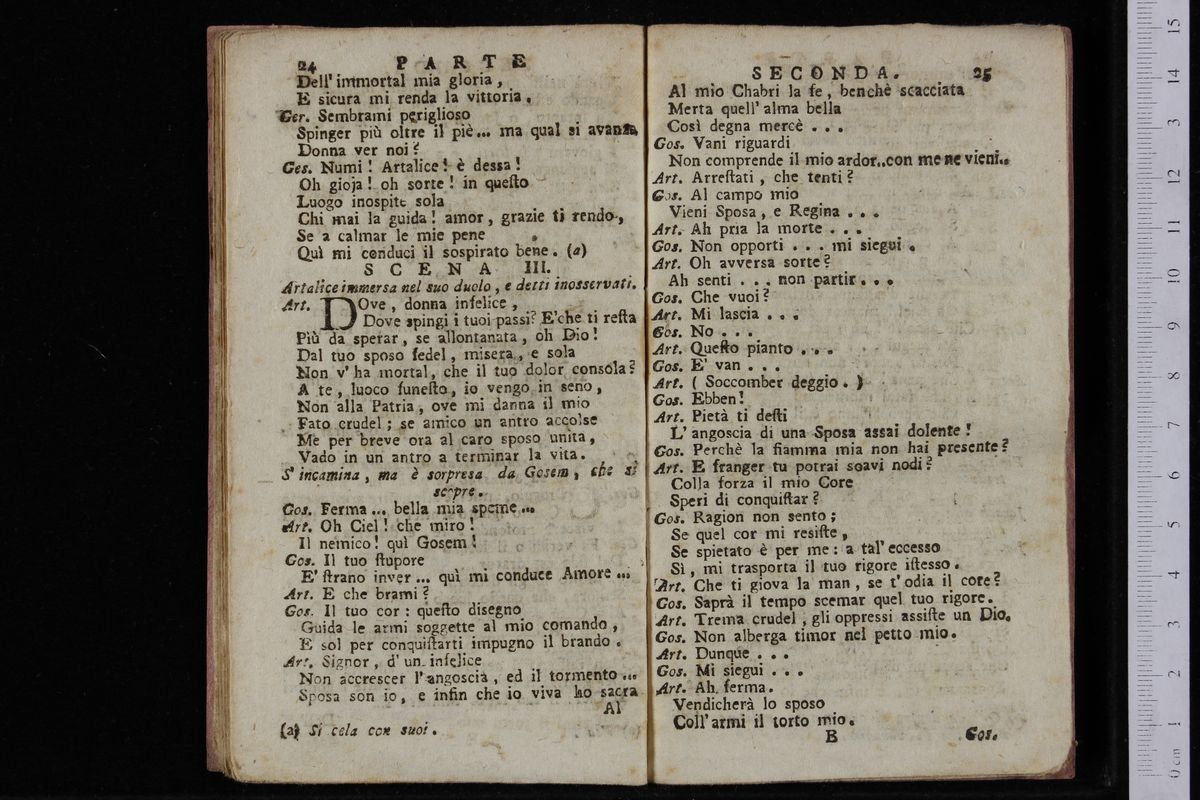 24 PARTE
Dell' immortal mia gloria,
E sicura mi renda la vittoria.
Ger. Sembrami periglioso
Spinger più oltre il piè... ma qual si avanza,
Donna ver noi?
Ges. Numi! Artalice! è dessa!
Oh gioja! oh sorte! in queſto
Luogo inospite sola
Chi mai la guida! amor, grazie ti rendo,
Se a calmar le mie pene
Quì mi conduci il sospirato bene. (a)
SCENA III.
Artalice immersa nel suo duolo, e detti inosservati.
Art. DOve, donna infelice,
Dove spingi i tuoi passi? E'che ti reſta
Più da sperar, se allontanata, oh Dio!
Dal tuo sposo fedel, misera, e sola
Non v'ha mortal, che il tuo dolor consola?
A te, luoco funeſto, io vengo in seno,
Non alla Patria, ove mi danna il mio
Fato crudel; se amico un antro accolse
Me per breve ora al caro sposo unita,
Vado in un antro a terminar la vita.
S'incamina, ma è sorpresa da Gosem, che si
scopre.
Gos. Ferma... bella mia speme...
Art. Oh Ciel! che miro!
Il nemico! quì Gosem!
Gos. Il tuo ſtupore
E' ſtrano inver... quì mi conduce Amore...
Art. E che brami?
Gos. Il tuo cor: queſto disegno
Guida le armi soggette al mio comando,
E sol per conquiſtarti impugno il brando.
Art. Signor, d'un infelice
Non accrescer l'angoscia, ed il tormento...
Sposa son io, e infin che io viva ho sacra
Al
(a) Si cela con suoi.
SECONDA. 25
Al mio Chabri la fe, benchè scacciata
Merta quell' alma bella
Così degna mercè...
Gos. Vani riguardi
Non comprende il mio ardor..con me ne vieni..
Art. Arreſtati, che tenti?
Gos. Al campo mio
Vieni Sposa, e Regina...
Art. Ah pria la morte...
Gos. Non opporti... mi siegui.
Art. Oh avversa sorte?
Ah senti... non partir...
Gos. Che vuoi?
Art. Mi lascia...
Gos. No...
Art. Queſto pianto...
Gos. E' van...
Art. (Soccomber deggio.)
Gos. Ebben!
Art. Pietà ti deſti
L'angoscia di una Sposa assai dolente!
Gos. Perchè la fiamma mia non hai presente?
Art. E franger tu potrai soavi nodi?
Colla forza il mio Core
Speri di conquiſtar?
Gos. Ragion non sento;
Se quel cor mi resiſte,
Se spietato è per me: a tal' eccesso
Sì, mi trasporta il tuo rigore iſtesso.
Art. Che ti giova la man, se t'odia il core?
Gos. Saprà il tempo scemar quel tuo rigore.
Art. Trema crudel, gli oppressi assiſte un Dio.
Gos. Non alberga timor nel petto mio.
Art. Dunque...
Gos. Mi siegui...
Art. Ah ferma.
Vendicherà lo sposo
Coll'armi il torto mio.
B Gos.
0 cm 1 2 3 4 5 6 7 8 9 10 11 12 3 14 15